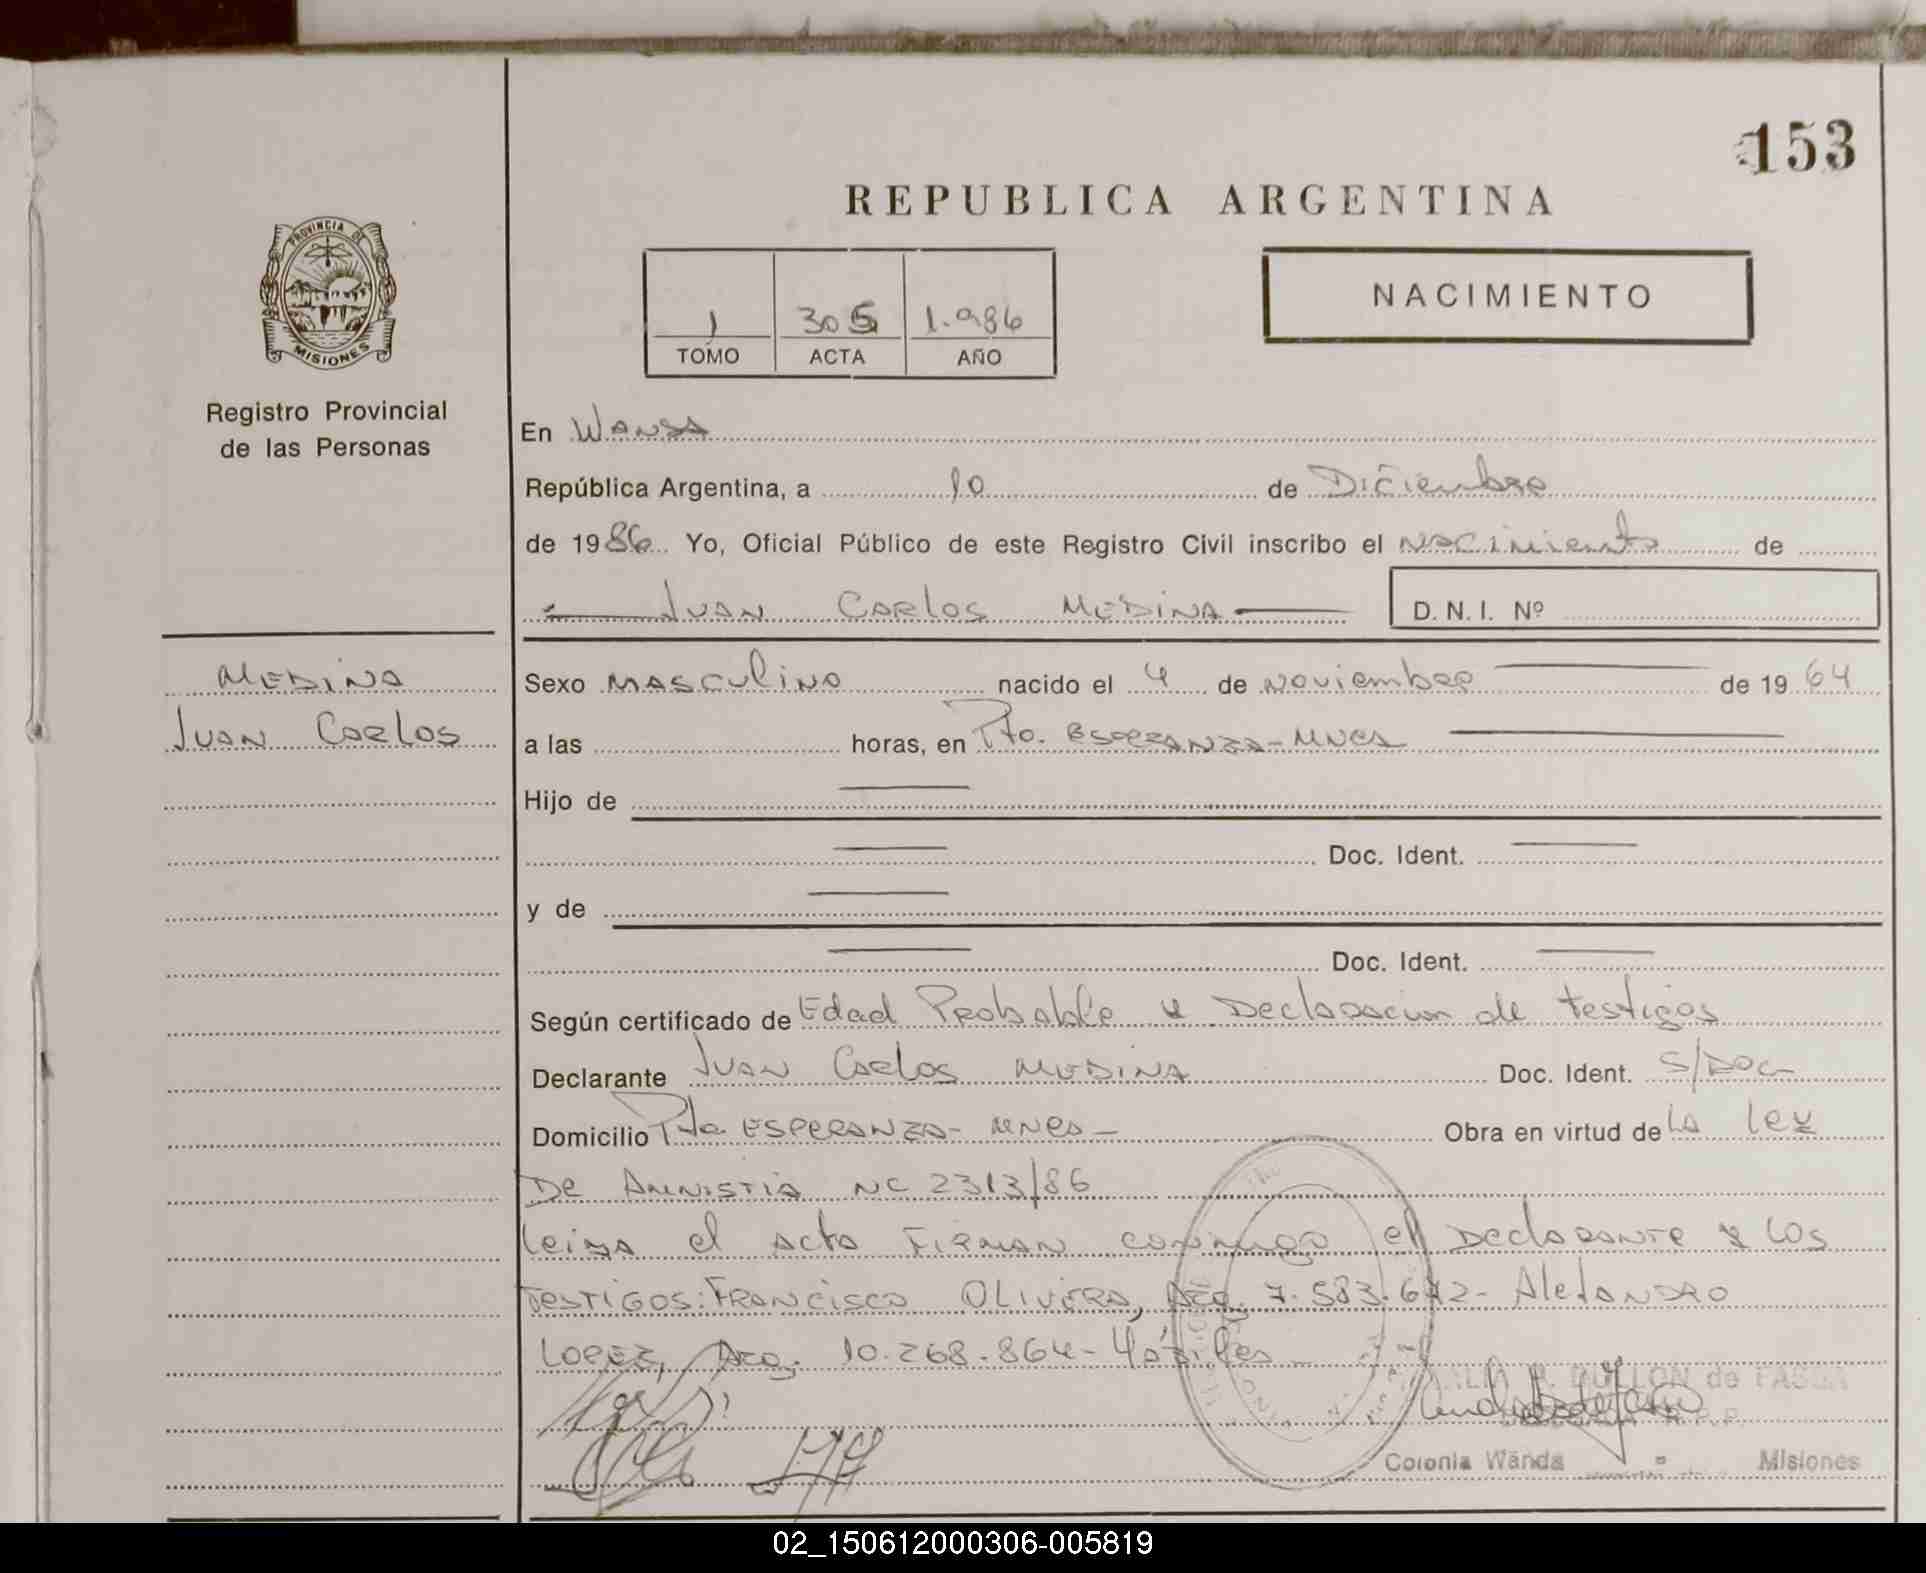 153
REPUBLICA ARGENTINA
PROVINCIA DE
MISIONES
1 305 1.986
TOMO ACTA AÑO
NACIMIENTO
Registro Provincial
de las Personas
En WANDA
República Argentina, a 10 de Diciembre
de 1986 Yo, Oficial Público de este Registro Civil inscribo el nacimiento de
JUAN CARLOS MEDINA D.N.I. Nº
MEDINA
JUAN CARLOS
Sexo MASCULINO nacido el 4 de noviembre de 19 64
a las horas, en Pto. ESPERANZA - MNES
Hijo de
Doc. Ident.
y de
Doc. Ident.
Según certificado de Edad Probable y Declaracion de testigos
Declarante JUAN CARLOS MEDINA Doc. Ident. S/DOC
Domicilio Pto ESPERANZA - MNES - Obra en virtud de LA LEY
De AMNISTIA NC 2313/86
leida el acta FIRMAN conmigo el Declarante y los
TESTIGOS: FRANCISCO OLIVERA, Arg. 7.583.672 - Alejandro
LOPEZ, Arg. 10.268.864 - Hábiles
DULLON de FASSA
Colonia Wanda - Misiones
02_150612000306-005819